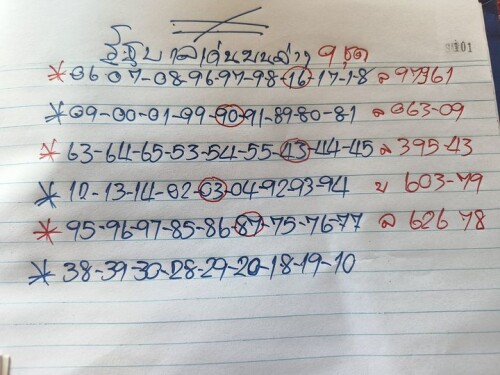 101
ธูรูบ เลเด่นบนล่าง 9 ชุด
* 06-07-08-96-97-98-16-17-1-8 ล 97361
* 09-00-01-99-90-91-89-80-81 ล 063-09
* 63-64-65-53-54-55-43-44-45 ล 395-43
* 12-13-14-02-03-04-9293-94 บ 603-79
* 95-96-97-85-86-87-75-76-77 ล 626 78
* 38-39-30-28-29-20-18-19-10